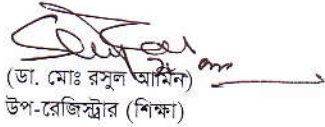 (ডা. মোঃ রসুল আমিন)
উপ-রেজিস্ট্রার (শিক্ষা)